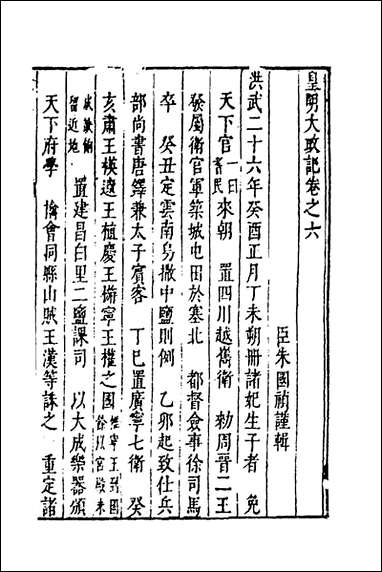 皇明大政記卷之六
臣朱國禎謹輯
洪武二十六年癸酉正月丁未朔冊諸妃生子者　免
天下官一日耆民來朝　置四川越雋衛　勑周晉二王
發屬衛官軍築城屯田於塞北　都督僉事徐司馬
卒　癸丑定雲南烏撒中鹽則例　乙卯起致仕兵
部尚書唐鐸兼太子賓客　丁巳置廣寧七衛　癸
亥肅王楧遼王植慶王㮵寧王權之國惟寧王到國餘以宮殿未
成兼餉留近地　置建昌白里二鹽課司　以大成樂器頒
天下府學　擒會同縣山賊王漢等誅之　重定諸